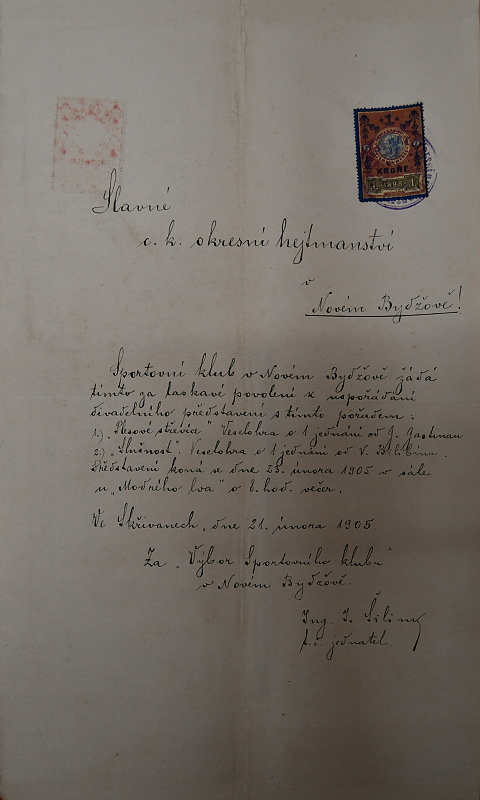 1
KRONE
1 1898 1
Slavné
c. k. okresní hejtmanství
v
Novém Bydžově!
Sportovní klub v Novém Bydžově žádá
tímto za laskavé povolení k uspořádání
divadelního představení s tímto pořadem:
1.) „Plesové střevíce" Veselohra o 1 jednání od G.
2.) „Slušnost". Veselohra o 1 jednání od V.
Představení koná se dne 25. února 1905 v sále
u „Modrého lva" o 8. hod. večer.
Ve Skřivanech, dne 21. února 1905
Za „Výbor Sportovního klubu"
v Novém Bydžově.
Ing. J.
t. č. jednatel.